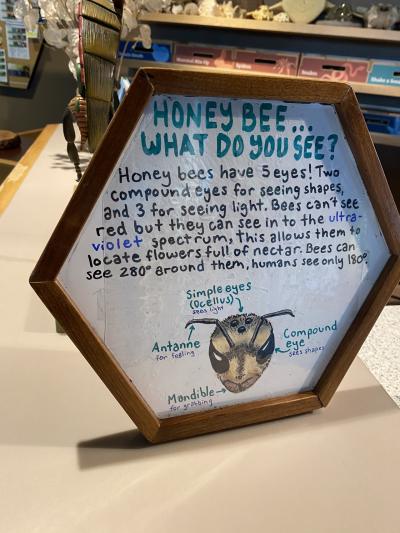 HONEY BEE...
WHAT DO YOU SEE?
Honey bees have 5 eyes! Two
compound eyes for seeing shapes,
and 3 for seeing light. Bees can't see
red but they can see in to the ultra-
violet spectrum, This allows them to
locate flowers full of nectar. Bees can
see 280° around them, humans see only 180°.
Simple eyes
(Ocellus)
sees light
Antanne
for feeling
Compound
eye
sees shapes
Mandible
for grabbing